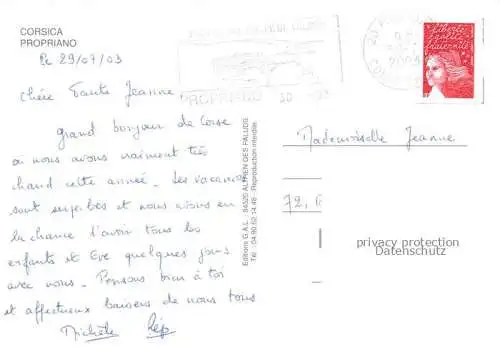 CORSICA
PROPRIANO
Le 29/07/03
Chère Tante Jeanne
Grand bonjour de Corse
où nous avons vraiment très
chaud cette année. Les vacances
sont superbes et nous avons eu
la chance d'avoir tous les
enfants et Eve quelques jours
avec nous. Pensons bien à toi
et affectueux baisers de nous tous
Michèle
Editions G.A.L. - 84520 ALTHEN DES PALUDS
Tél : 04 90 62 14 48 - Reproduction interdite.
PROPRIANO
liberté
égalité
fraternité
Mademoiselle Jeanne
72, 6
privacy protection
Datenschutz